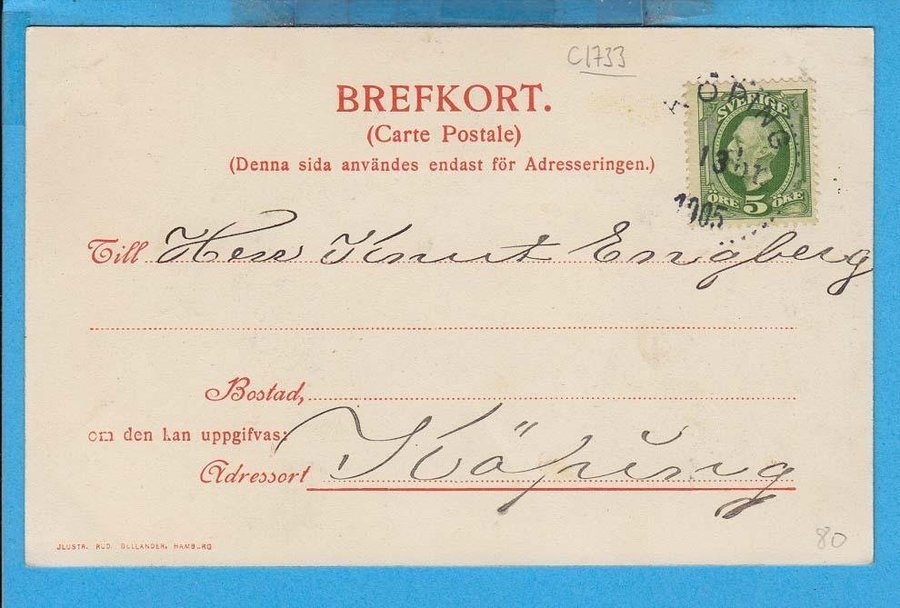 C1733
BREFKORT.
(Carte Postale)
(Denna sida användes endast för Adresseringen.)
KÖPING
13
1905
SVERIGE
ÖRE 5 ÖRE
Till Herr Knut Engberg
Bostad,
om den kan uppgifvas:
Adressort Köping
JLUSTR. RUD. OLLANDER, HAMBURG
80